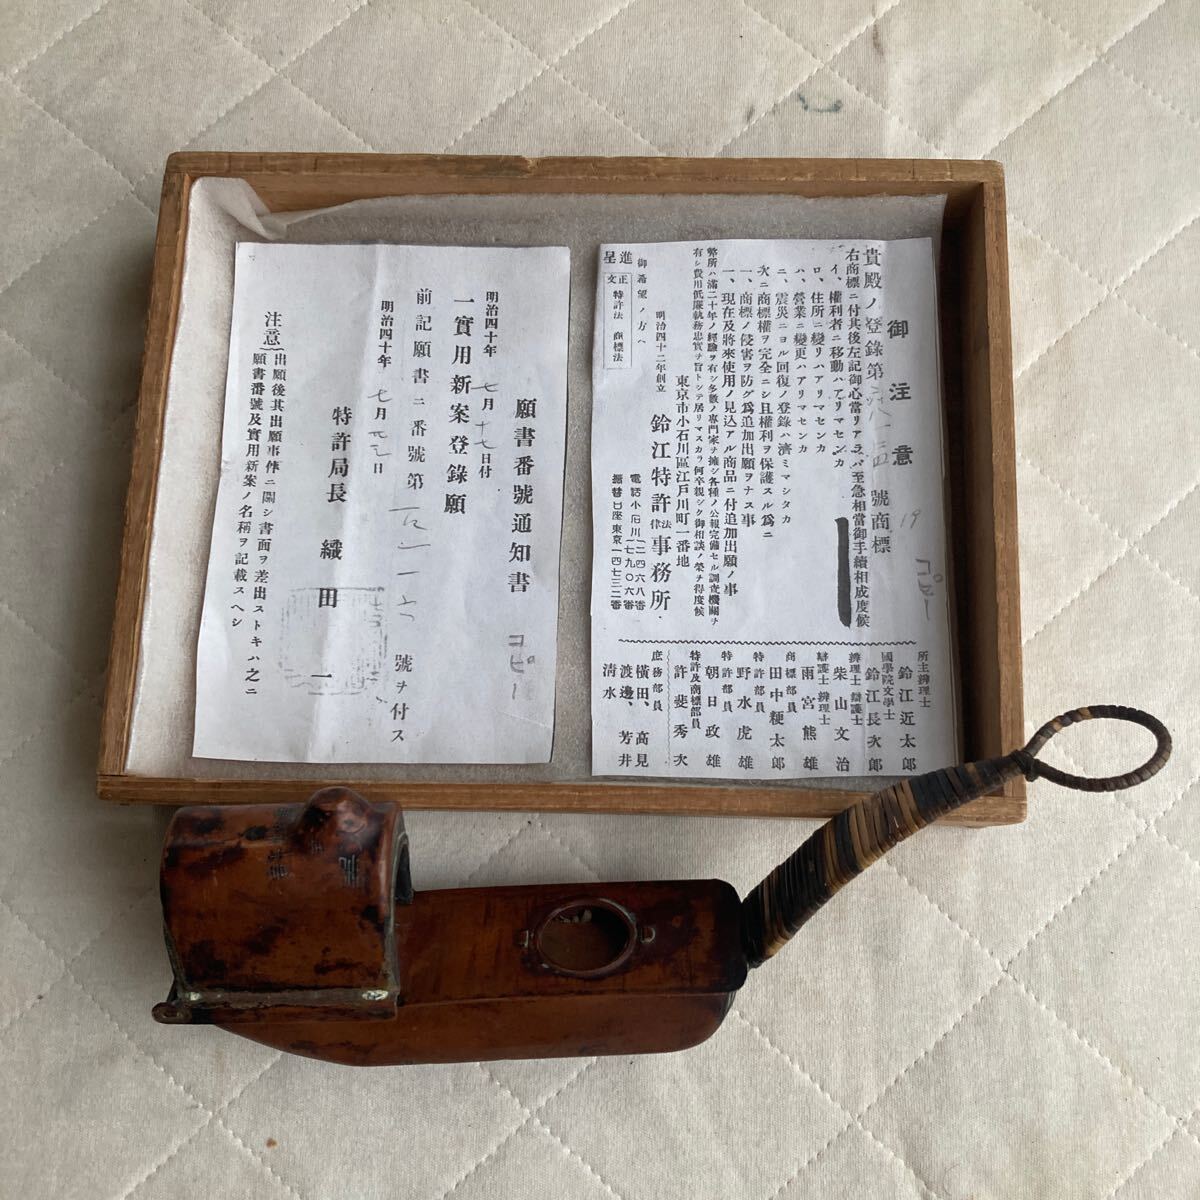 御注意
貴殿ノ登錄第 號商標
右商標ニ付其後左記御心當リアラバ至急相當御手續相成度候
イ、權利者ニ移動ハアリマセンカ
ロ、住所ニ變リハアリマセンカ
ハ、營業ニ變更ハアリマセンカ
ニ、震災ニヨル回復ノ登錄ハ濟ミマシタカ
次ニ商標權ヲ完全ニシ且權利ヲ保護スル爲ニ
一、商標ノ侵害ヲ防グ爲追加出願ヲナス事
一、現在及將來使用ノ見込アル商品ニ付追加出願ノ事
弊所ハ滿二十年ノ經驗ヲ有シ多數ノ專門家ヲ擁シ各種ノ公報完備セル調査機關ヲ
有シ費用低廉執務忠實ヲ旨トシテ居リマスカラ何卒親シク御相談ノ榮ヲ得度候
東京市小石川區江戸川町一番地
明治四十二年創立 鈴江特許法律事務所
電話小石川
振替口座東京一四七三二番
御希望ノ方ヘ
進呈
正文 特許法 商標法
19
コピー
所主辨理士 鈴江近太郎
國學院文學士 鈴江長次郎
辨理士 辯護士 柴山文治
辯護士 辨理士 雨宮熊雄
商標部員 田中粳太郎
特許部員 野水虎雄
特許部員 朝日政雄
特許及商標部員 許斐秀次
庶務部員 橫田、高見
渡邊、芳井
淸水
願書番號通知書
コピー
明治四十年七月十七日付
一實用新案登錄願
前記願書ニ番號第 號ヲ付ス
明治四十年七月 日
特許局長 織田一
注意
出願後其出願事件ニ關シ書面ヲ差出ストキハ之ニ
願書番號及實用新案ノ名稱ヲ記載スヘシ